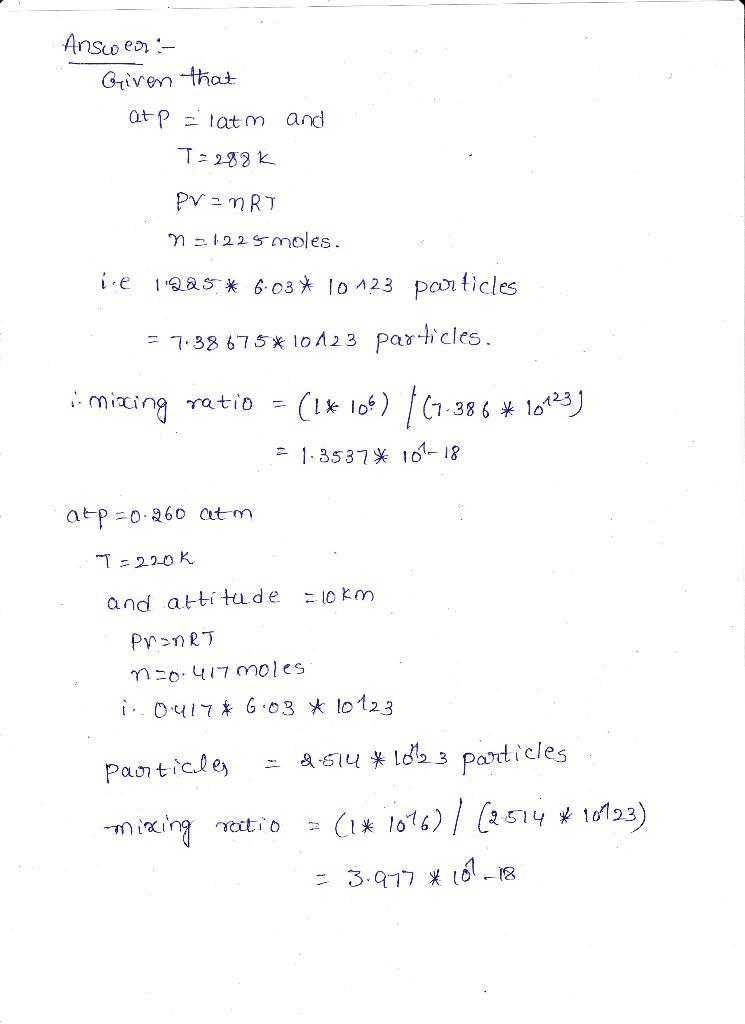 Answer :-
Given that
at p = 1atm and
T = 288 K
PV = nRT
n = 1.225 moles.
i.e 1.225 * 6.03 * 10^23 particles
= 7.38675 * 10^23 particles.
∴ mixing ratio = (1 * 10^6) / (7.386 * 10^23)
= 1.3537 * 10^-18
at p = 0.260 atm
T = 220 K
and attitude = 10 km
PV = nRT
n = 0.417 moles
i.. 0.417 * 6.03 * 10^23
particles = 2.514 * 10^23 particles
mixing ratio = (1 * 10^6) / (2.514 * 10^23)
= 3.977 * 10^-18